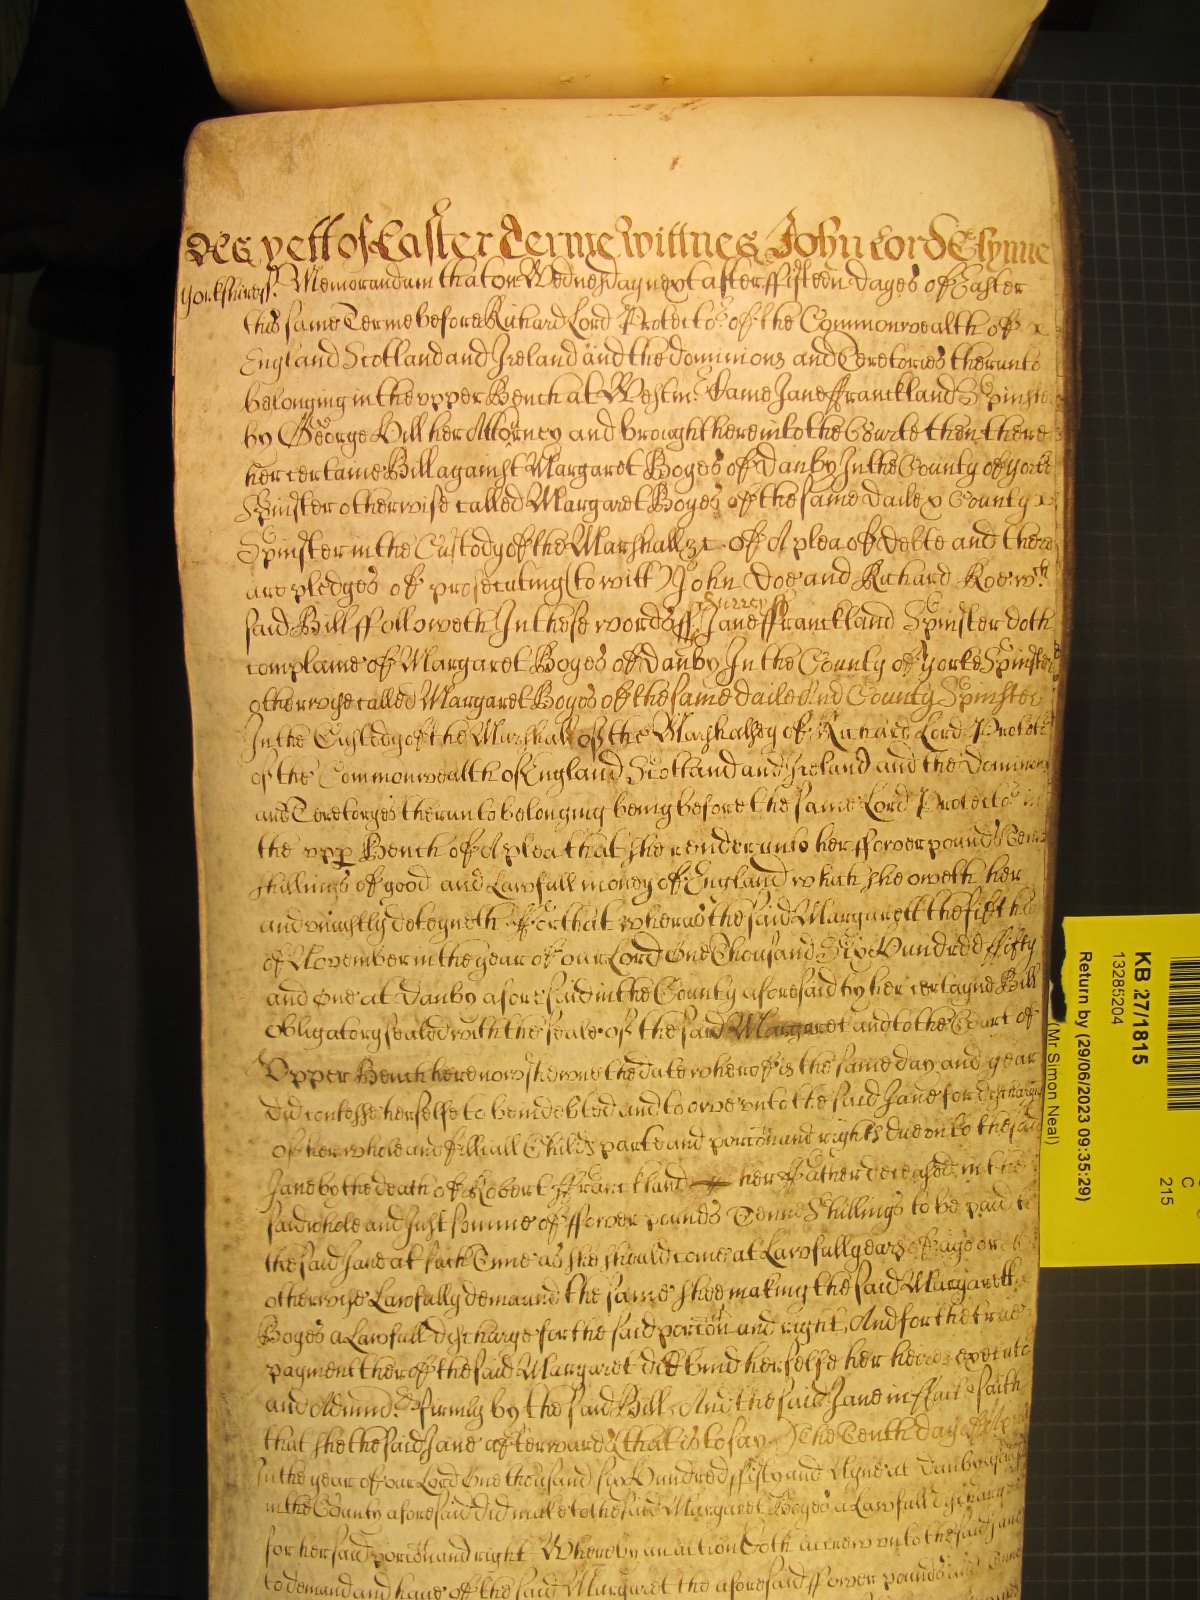 As yett of Easter Terme Wittnes John Lord Glynne
Yorkshire ss. Memorandum that on Wednesday next after fifteen dayes of Easter
this same Terme before Richard Lord Protector of the Commonwealth of
England Scotland and Ireland and the dominions and Teretories therunto
belonging in the upper Bench at Westm. Came Jane ffranckland Spinster
by George Hill her Attorney and brought here into the Courte then there
her certaine Bill against Margaret Boyes of Danby In the County of Yorke
Spinster otherwise called Margaret Boyes of the same Dale & County
Spinster in the Custody of the Marshall &c. of A plea of debte and there
are pledges of prosecuting (to witt) John Doe and Richard Roe wch
Surrey ss
said Bill ffolloweth In these words ss. Jane ffranckland Spinster doth
complaine of Margaret Boyes of Danby In the County of Yorke Spinster
otherwise called Margaret Boyes of the same daile And County Spinster
In the Custody of the Marshall of the Marshalsey of Richard Lord Protector
of the Commonwealth of England Scotland and Ireland and the Dominions
and Teretoryes therunto belonging being before the same Lord Protector in
the upp Bench of A plea that she render unto her ffower pounds Tenn
shillings of good and Lawfull money of England which she oweth her
and uniustly deteyneth ffor that wheras the said Margarett the fift
of November in the year of our Lord One Thousand Six Hundred ffifty
and One at Danby aforesaid in the County aforesaid by her certayne Bill
obligatory seald with the seale of the said Margaret and to the Court of
Upper Bench here now shewne the date wherof is the same day and year
did confesse herselfe to be indebted and to owe unto the said Jane for discharge
of her whole and filliall Childs parte and porcon and rights due unto the said
Jane by the death of Robert ffranckland her ffather deceased in the
said whole and Just summe of ffower pounds Tenne Shillings to be paid to
the said Jane at such Time as she should come at Lawfull years of age or
otherwise Lawfully demaund the same shee making the said Margarett
Boyes a Lawfull discharge for the said porcon and right, And for the true
payment therof the said Margaret did bind herselfe her heires executors
and Admind. firmly by the said Bill And the said Jane in ffact saith
that she the said Jane afterwards (that is to say) the Tenth day of
In the year of our Lord One thousand six Hundred ffifty and Nyne at Danby aforesaid
in the County aforesaid did make to the said Margaret Boyes a Lawfull discharge
for her said porcon and right Wherby an action doth accrew unto the said Jane
to demand and have of the said Margaret the aforesaid ffower pounds and Tenne
KB 27/1815
13285204
Return by (29/06/2023 09:35:29)
(Mr Simon Neal)
C
215